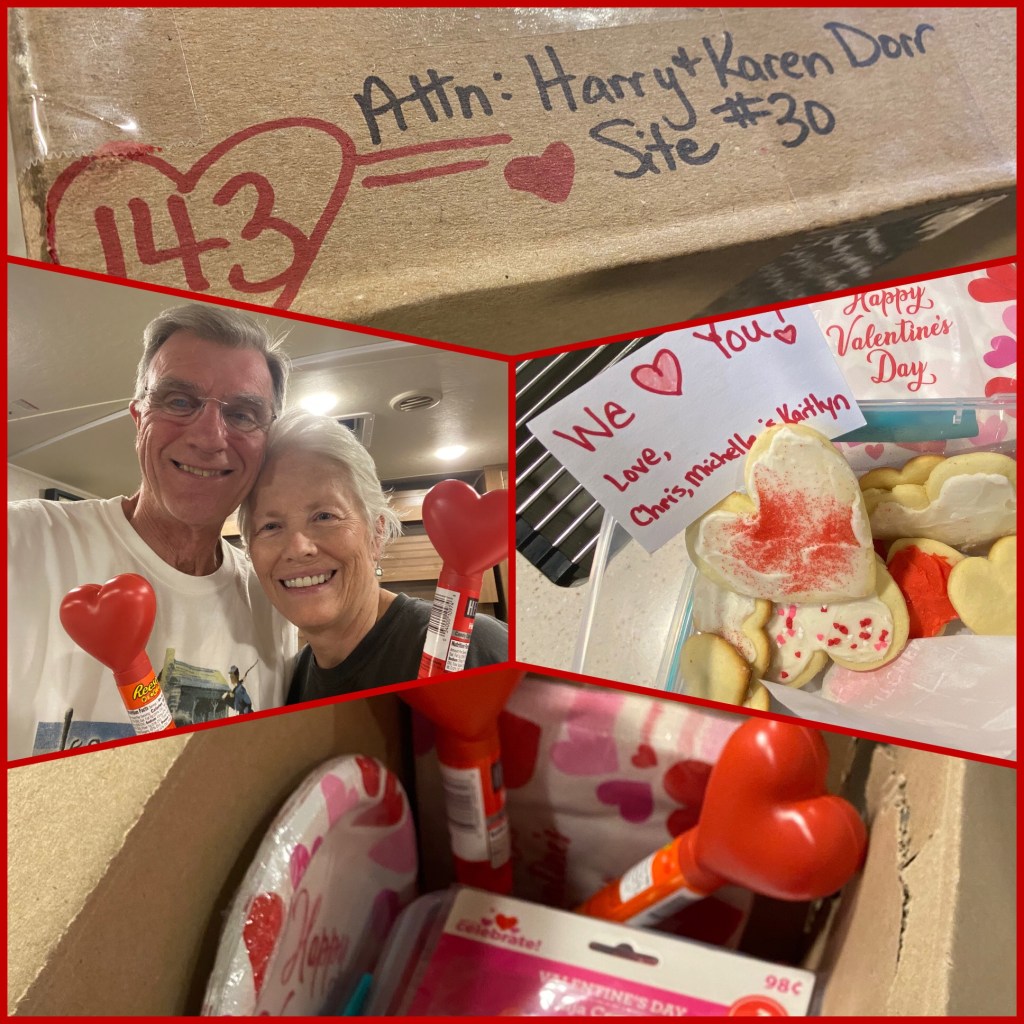 Attn: Harry & Karen Dorr
Site #30
143
We You!
Love,
Chris, Michelle & Kaitlyn
Happy
Valentine's
Day
Reese's
Happy
Celebrate!
98¢
VALENTINE'S DAY